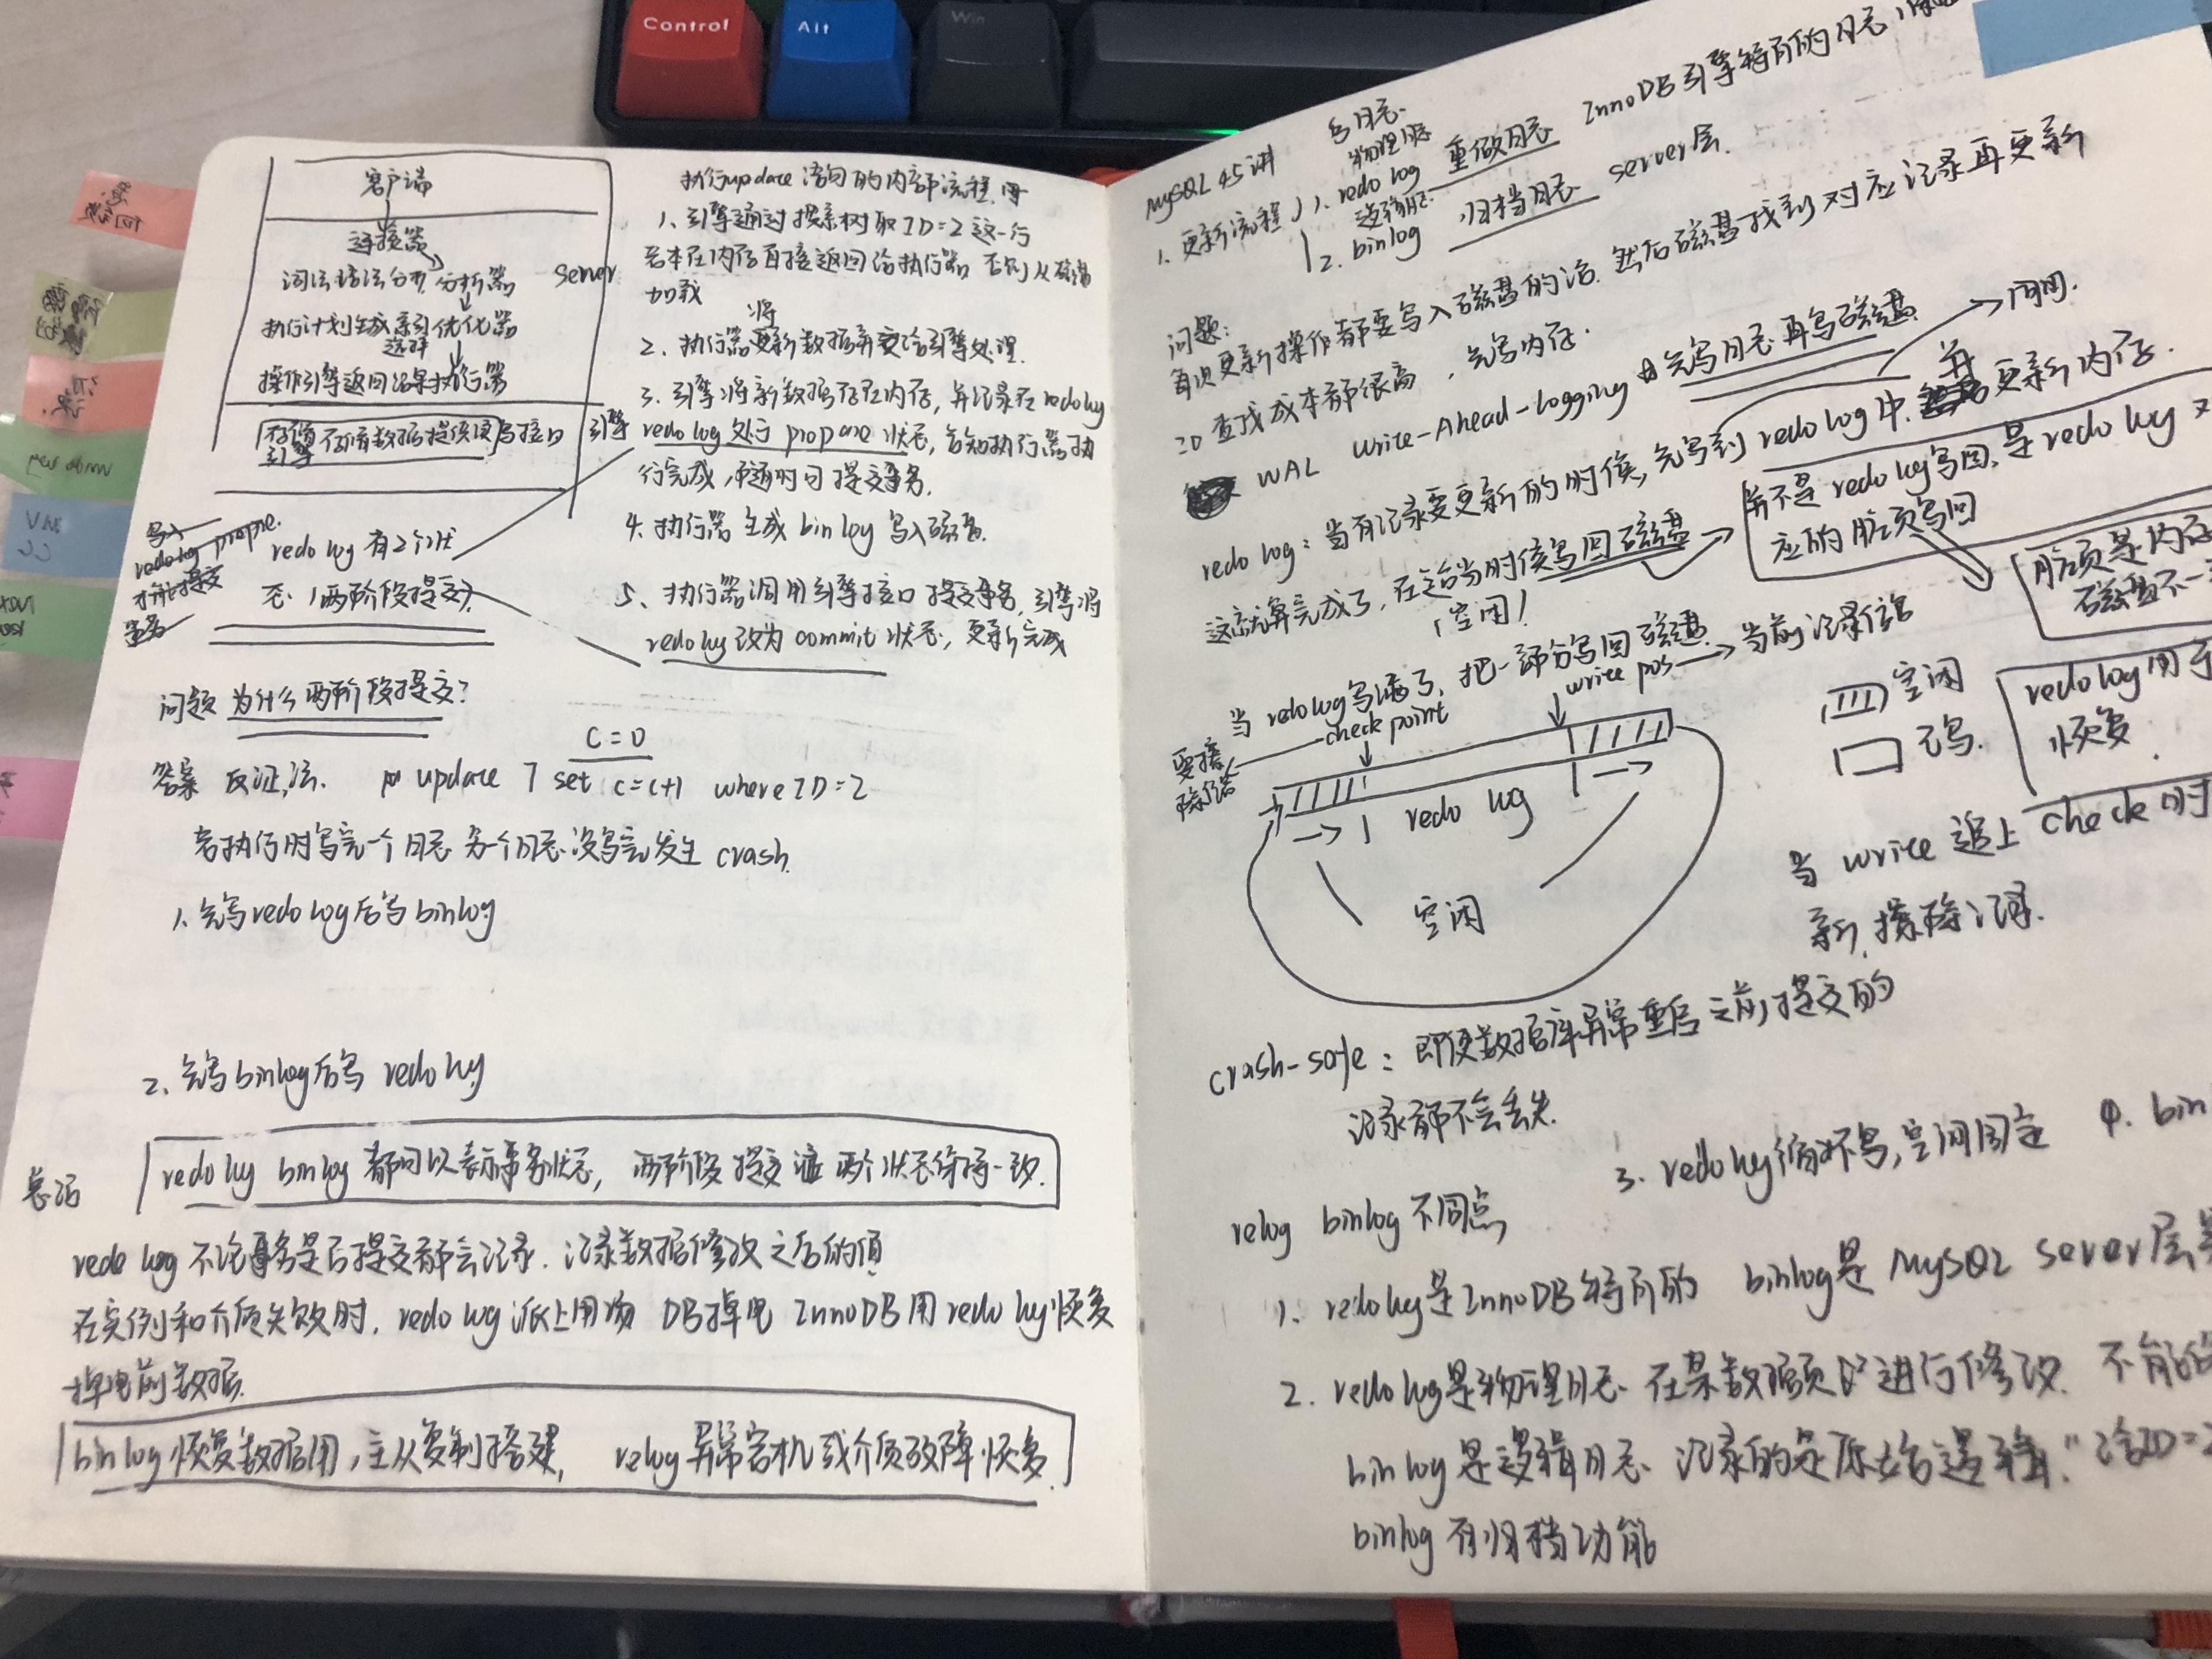 Control
Alt
Win
客户端
连接器
词法语法分析 分析器
执行计划生成 索引选择 优化器
操作引擎返回结果 执行器
server
存储引擎 存储数据提供读写接口
引擎
写入
redo log prepare
才能提交
事务
redo log 有2个状
态 (两阶段提交)
问题 为什么两阶段提交?
C=0
答案 反证法. update T set c=c+1 where ID=2
若执行时写完一个日志 另个日志没写完发生 crash.
1. 先写redo log后写binlog
2. 先写binlog后写 redo log
总结
redo log binlog 都可以表示事务状态, 两阶段提交 让 两个状态保持一致.
redo log 不论事务是否提交都会记录. 记录数据修改之后的值
在实例和介质失败时, redo log 派上用场 DB掉电 InnoDB 用 redo log 恢复
掉电前数据.
binlog 恢复数据用, 主从复制搭建, relog 异常宕机或介质故障恢复.
执行update 语句的内部流程.
1. 引擎通过搜索树取 ID=2 这一行
若本在内存直接返回给执行器 否则从磁盘
加载
将
2. 执行器更新数据并交给引擎处理.
3. 引擎将新数据存在内存, 并记录在 redo log
redo log 处于 propare 状态, 告知执行器执
行完成, 随时可提交事务.
4. 执行器 生成 bin log 写入磁盘.
5. 执行器调用引擎接口 提交事务, 引擎将
redo log 改为 commit 状态, 更新完成
MySQL 45讲
1. 更新流程
写日志.
物理日志
1. redo log 重做日志 InnoDB引擎特有的日志
逻辑日志
2. binlog 归档日志 server层.
问题:
每次更新操作都要写入磁盘的话. 然后磁盘找到对应记录再更新
IO 查找成本都很高, 先写内存.
WAL Write-Ahead-Logging 先写日志 再写磁盘
redo log: 当有记录要更新的时候, 先写到 redo log 中. 并更新内存.
这就算完成了, 在适当时候写回磁盘
(空闲)
并不是 redo log写回, 是 redo log 对
应的 脏页写回
脏页是内存
磁盘不一
当 redo log写满了, 把一部分写回磁盘.
check point
write pos → 当前记录位置
要擦
除位置
redo log
空闲
空闲
已写.
redo log 用于
恢复
当 write 追上 check 时
新, 擦除记录.
crash-safe: 即使数据库异常重启 之前提交的
记录都不会丢失.
relog binlog 不同点
3. redo log循环写, 空间固定
4. bin
1. redo log是InnoDB特有的 binlog是 MySQL server层
2. redo log是物理日志 在某数据页 进行修改. 不能
binlog 是逻辑日志 记录的是原始逻辑. "给ID=2
binlog 有归档功能